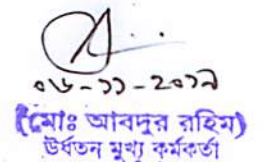 ০৬-১১-২০১৯
(মোঃ আবদুর রহিম)
উর্ধতন মুখ্য কর্মকর্তা